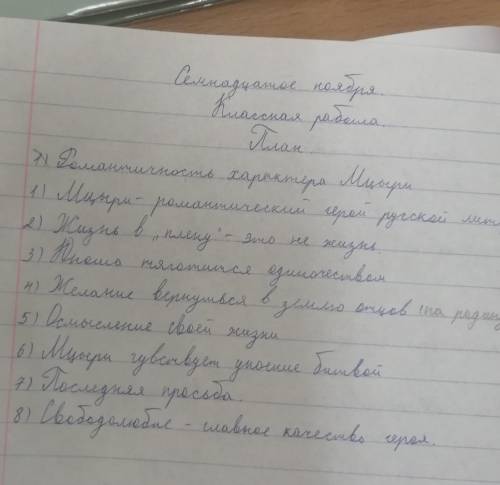 Семнадцатое ноября.
Классная работа.
План
7) Романтичность характера Мцыри
1) Мцыри - романтический герой русской лит
2) Жизнь в "плену" - это не жизнь.
3) Юноша тяготится одиночеством
4) Желание вернуться в землю отцов (на родину
5) Осмысление своей жизни
6) Мцыри чувствует упоение битвой
7) Последняя просьба.
8) Свободолюбие - главное качество героя.